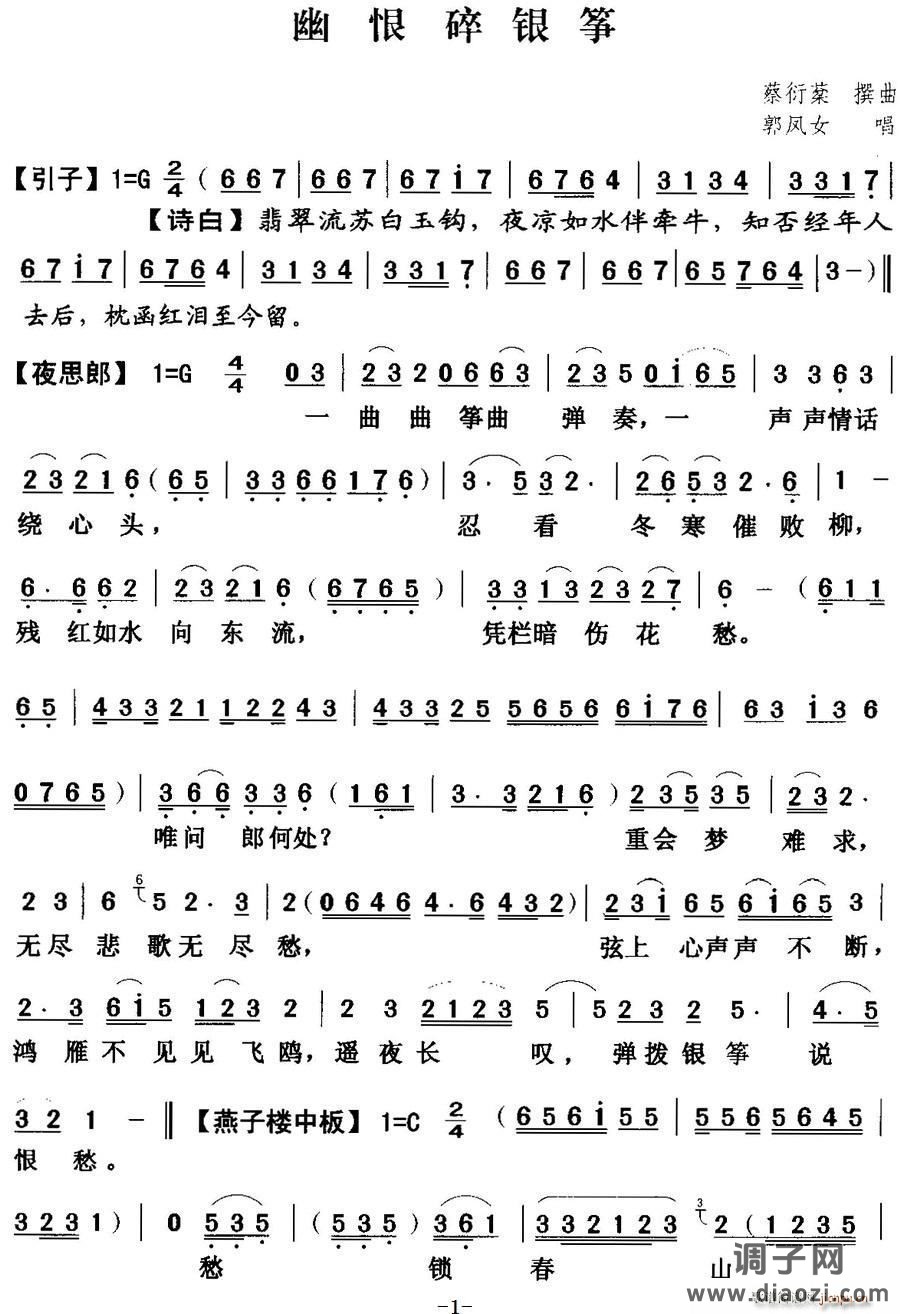 幽恨碎银筝
蔡衍棻 撰曲
郭凤女 唱
【引子】1=G 2/4 ( 6 6 7 | 6 6 7 | 6 7 i 7 | 6 7 6 4 | 3 1 3 4 | 3 3 1 7 |
【诗白】翡翠流苏白玉钩，夜凉如水伴牵牛，知否经年人
6 7 i 7 | 6 7 6 4 | 3 1 3 4 | 3 3 1 7 | 6 6 7 | 6 6 7 | 6 5 7 6 4 | 3 - ) ‖
去后，枕函红泪至今留。
【夜思郎】 1=G 4/4 0 3 | 2 3 2 0 6 6 3 | 2 3 5 0 i 6 5 | 3 3 6 3 |
一 曲 曲 筝曲 弹 奏，一 声 声情话
2 3 2 1 6 ( 6 5 | 3 3 6 6 1 7 6 ) | 3 · 5 3 2 · | 2 6 5 3 2 · 6 | 1 -
绕 心 头， 忍 看 冬 寒 催 败 柳，
6 · 6 6 2 | 2 3 2 1 6 ( 6 7 6 5 ) | 3 3 1 3 2 3 2 7 | 6 - ( 6 1 1
残 红如水 向 东 流， 凭栏暗 伤 花 愁。
6 5 | 4 3 3 2 1 1 2 2 4 3 | 4 3 3 2 5 5 6 5 6 6 i 7 6 | 6 3 i 3 6
0 7 6 5 ) | 3 6 6 3 3 6 ( 1 6 1 | 3 · 3 2 1 6 ) 2 3 5 3 5 | 2 3 2 ·
唯问 郎何处？ 重会 梦 难 求，
2 3 | 6 6 5 2 · 3 | 2 ( 0 6 4 6 4 · 6 4 3 2 ) | 2 3 i 6 5 6 i 6 5 3 |
无尽 悲 歌无 尽 愁， 弦上 心声声 不 断，
2 · 3 6 i 5 1 2 3 2 | 2 3 2 1 2 3 5 | 5 2 3 2 5 · | 4 · 5
鸿 雁 不 见 见 飞 鸥，遥 夜 长 叹，弹拨银 筝 说
3 2 1 - ‖ 【燕子楼中板】 1=C 2/4 ( 6 5 6 i 5 5 | 5 6 5 5 6 4 5 |
恨 愁。
3 2 3 1 ) | 0 5 3 5 | ( 5 3 5 ) 3 6 1 | 3 3 2 1 2 3 | 3 2 ( 1 2 3 5
愁 锁 春 山
调子网
www.diaozi.com
-1-